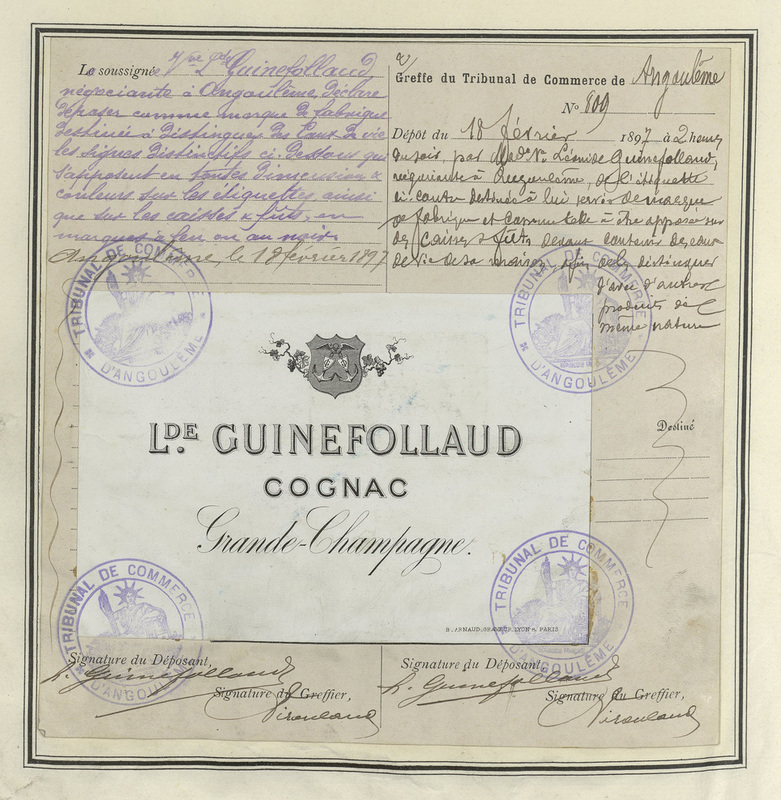 Le soussignée Vve Lde Guinefollaud,
négociante à Angoulême déclare
déposer comme marque de fabrique
destinée à distinguer des Eaux de vie
les signes distinctifs ci-dessous qui
s'apposent en toutes dimensions &
couleurs sur les étiquettes, ainsi
que sur les caisses & fûts, en
marques à feu ou au noir.
Angoulême, le 18 février 1897
Greffe du Tribunal de Commerce de Angoulême
No 809
Dépôt du 18 février 1897 à 2 heures
du soir, par Made Ve Léonide Guinefollaud,
négociante à Angoulême, de l'étiquette
ci-contre destinée à lui servir de marque
de fabrique et comme telle à être apposée sur
des caisses & fûts devant contenir des eaux
de vie de sa maison, afin de les distinguer
d'avec d'autres
produits de
même nature
TRIBUNAL DE COMMERCE
D'ANGOULÊME
TRIBUNAL DE COMMERCE
D'ANGOULÊME
LDE. GUINEFOLLAUD
COGNAC
Grande-Champagne.
Destiné
TRIBUNAL DE COMMERCE
D'ANGOULÊME
TRIBUNAL DE COMMERCE
D'ANGOULÊME
B. ARNAUD, GRAVEUR, LYON & PARIS
Signature du Déposant,
Guinefollaud
Signature du Greffier,
Signature du Déposant,
Guinefollaud
Signature du Greffier,